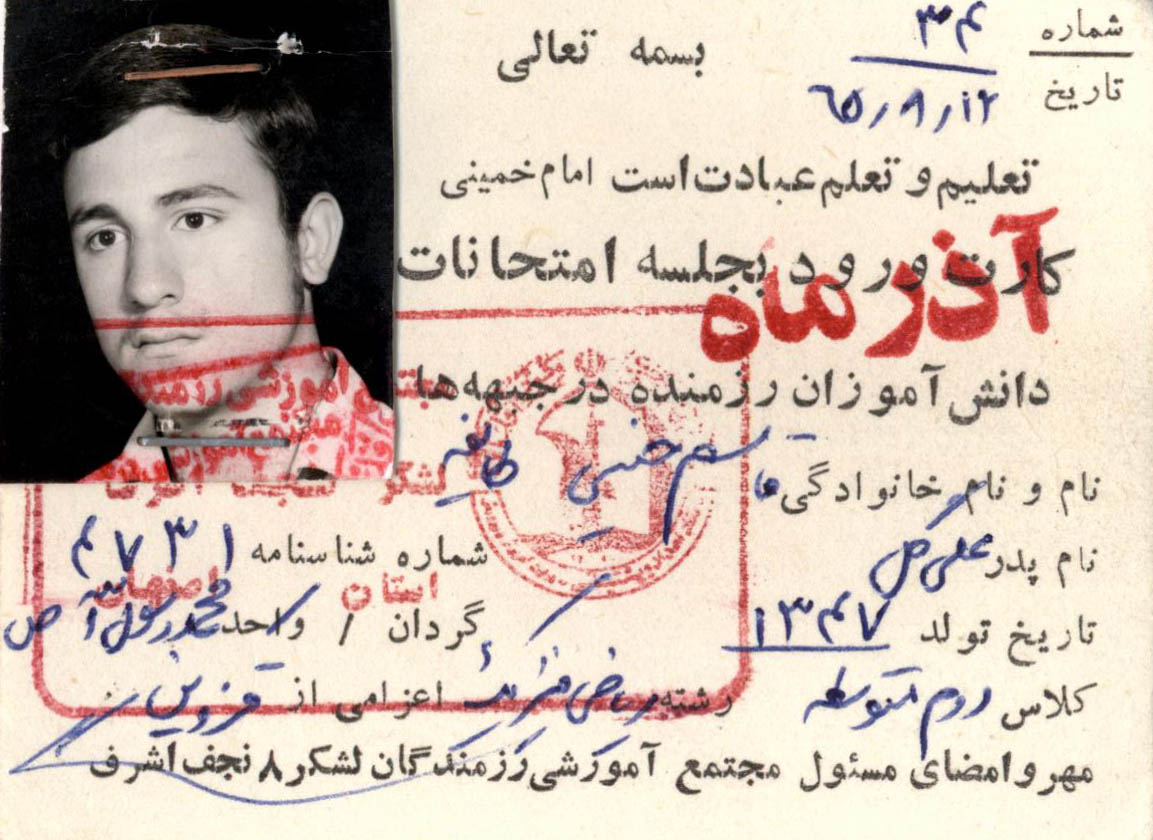 شماره ۳۴
تاریخ ۶۵/۹/۱۲
بسمه تعالی
تعلیم و تعلم عبادت است امام خمینی
کارت ورود بجلسه امتحانات
آذر ماه
دانش آموزان رزمنده در جبهه‌ها
نام و نام خانوادگی
نام پدر علی
شماره شناسنامه ۴۷۳۱
تاریخ تولد ۱۳۴۷
گردان / واحد محمد رسول الله ص
کلاس دوم متوسطه رشته ریاضی فیزیک اعزامی از قزوین
مهر و امضای مسئول مجتمع آموزشی رزمندگان لشکر ۸ نجف اشرف
مجتمع آموزشی رزمندگان
لشکر نجف اشرف
استان اصفهان